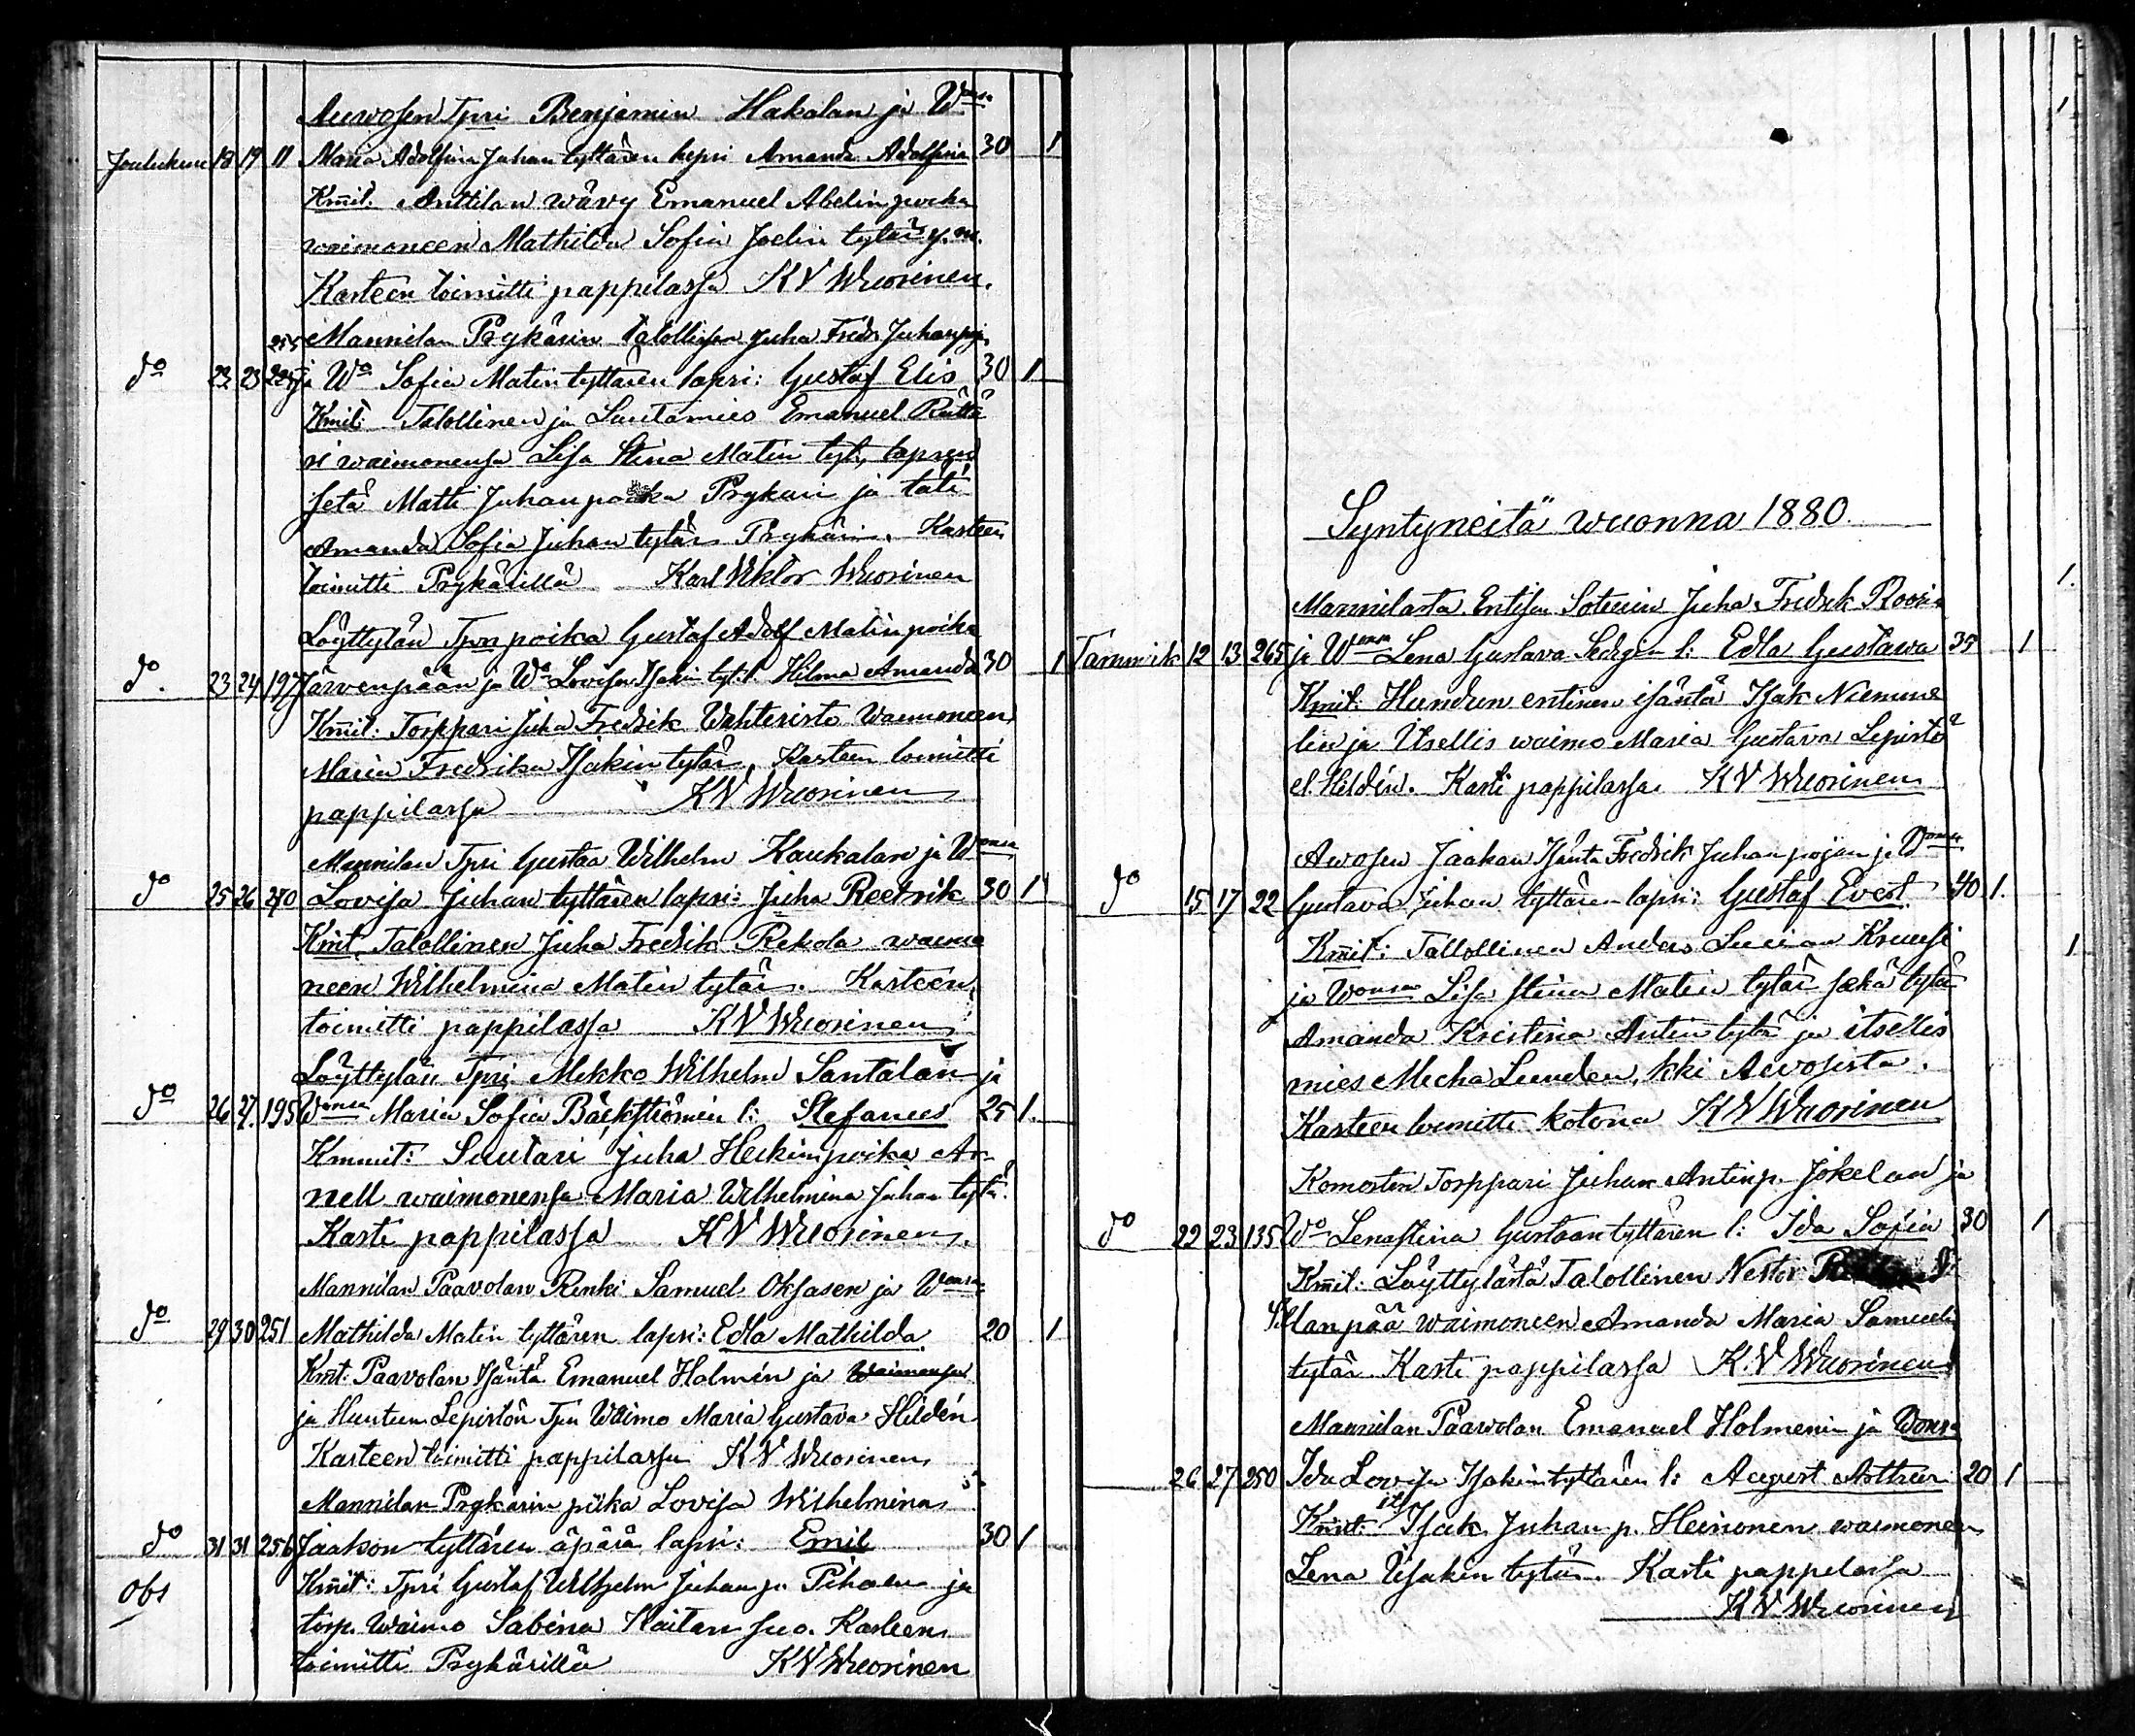 Auvosen Tpri Benjamin Hakalan ja W
Joulukuu 18 19 11 Maria Adolfina Juhan tyttären lapsi Amanda Adolfina 30 1
Kmit. Anttilan wävy Emanuel Abelin poika
waimoneen Mathilda Sofia Joelin tytär y.m.
Kasteen toimitti pappilassa KV Wuorinen.
255 Mannilan Prykärin talollisen Juha Fredr Juhanpoj.
do 23 23 ja Wo Sofia Matin tyttären lapsi: Gustaf Elis 30 1
Kmit: Talollinen ja Lautamies Emanuel Rättä
ri waimonensa Lisa Stina Matin tyt, lapsen
setä Matti Juhan poika Prykäri ja täti
Amanda Sofia Juhan tytär Prykäri. Kasteen
toimitti Prykärillä Karl Viktor Wuorinen
Löyttylän Tprn poika Gustaf Adolf Matin poika
do. 23 24 197 Järvenpään ja Wo Lovisa Isakin tyt. l. Hilma Amanda 30 1
Kmit: Torppari Juha Fredrik Vahteristo Waimoneen
Maria Fredrika Isakin tytär, Kasteen toimitti
pappilassa KV Wuorinen
Mannilan Tpri Gustaa Wilhelm Kaukalan ja Wonsa
do 25 26 270 Lovisa Juhan tyttären lapsi: Juha Reetrik 30 1
Kmit. Talollinen Juha Fredrik Rekola waimo
neen Wilhelmina Matin tytär. Kasteen
toimitti pappilassa KV Wuorinen
Löyttylän Tpri Mikko Wilhelm Santalan ja
do 26 27. 195 Wonsa Maria Sofia Bäckströmin l: Stefanus 25 1.
Kmmit: Suutari Juha Heikin poika Ar
nell waimonensa Maria Wilhelmina Juhan tytä.
Kasti pappilassa KV Wuorinen.
Mannilan Paavolan Renki Samuel Oksasen ja Wonsa
do 29 30 251 Mathilda Matin tyttären lapsi: Edla Mathilda. 20 1
Kmit: Paavolan Isäntä Emanuel Holmén ja Waimonsa
ja Huntun Lepistön Tprn Waimo Maria Gustava Hildén
Kasteen toimitti pappilassa KV Wuorinen,
Mannilan Prykärin piika Lovisa Wilhelmina
do 31 31 256 Jaakon tyttären äpärä lapsi: Emil 30 1
obs Kmit: Tpri Gustaf Wilhelm Juhan p. Pihalan ja
torp. Waimo Sabina Raitansuo. Kasteen
toimitti Prykärillä KV Wuorinen
1
Syntyneitä wuonna 1880.
1.
Mannilasta Entisen Soturin Juha Fredrik Roosin
Tammik 12 13 265 ja Wonsa Lena Gustava Sedrgen l: Edla Gustawa 35 1
Kmit: Hundun entinen isäntä Isak Niemme
lin ja Itsellis waimo Maria Gustava Lepistö
el. Hildén. Kasti pappilassa. KV Wuorinen
Auvosen Jaakan Isäntä Fredrik Juhan pojan ja Wonsa
do 15 17 22 Gustava Juhan tyttären lapsi: Gustaf Evert. 40 1.
Kmit: Tallollinen Anders Kruusi 1
ja Wonsa Lisa Stina Matin tytär sekä tytä
Amanda Kristina Antin tytä ja itsellis
mies Micha Lunden, kki Auvosista.
Kasteen toimitti kotona KV Wuorinen
Komosten Torppari Juhan Antinp. Jokelan ja
do 22 23 135 Wo Lenastina Gustaan tyttären l: Ida Sofia 30 1
Kmit: Löyttylästä Talollinen Nestor
Sillanpää waimoneen Amanda Maria Samuelin
tytär Kasti pappilassa K.V Wuorinen
Mannilan Paavolan Emanuel Holmenin ja Wonsa
26 27 250 Ida Lovisa Isakin tyttären l: August Arttur 20 1
Kmit: its Isak Juhan p. Heinonen waimoneen
Lena Isakin tytär. Kasti pappilassa
KV Wuorinen